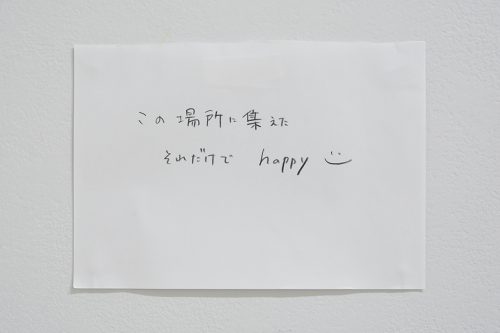 この場所に集えた
それだけで happy